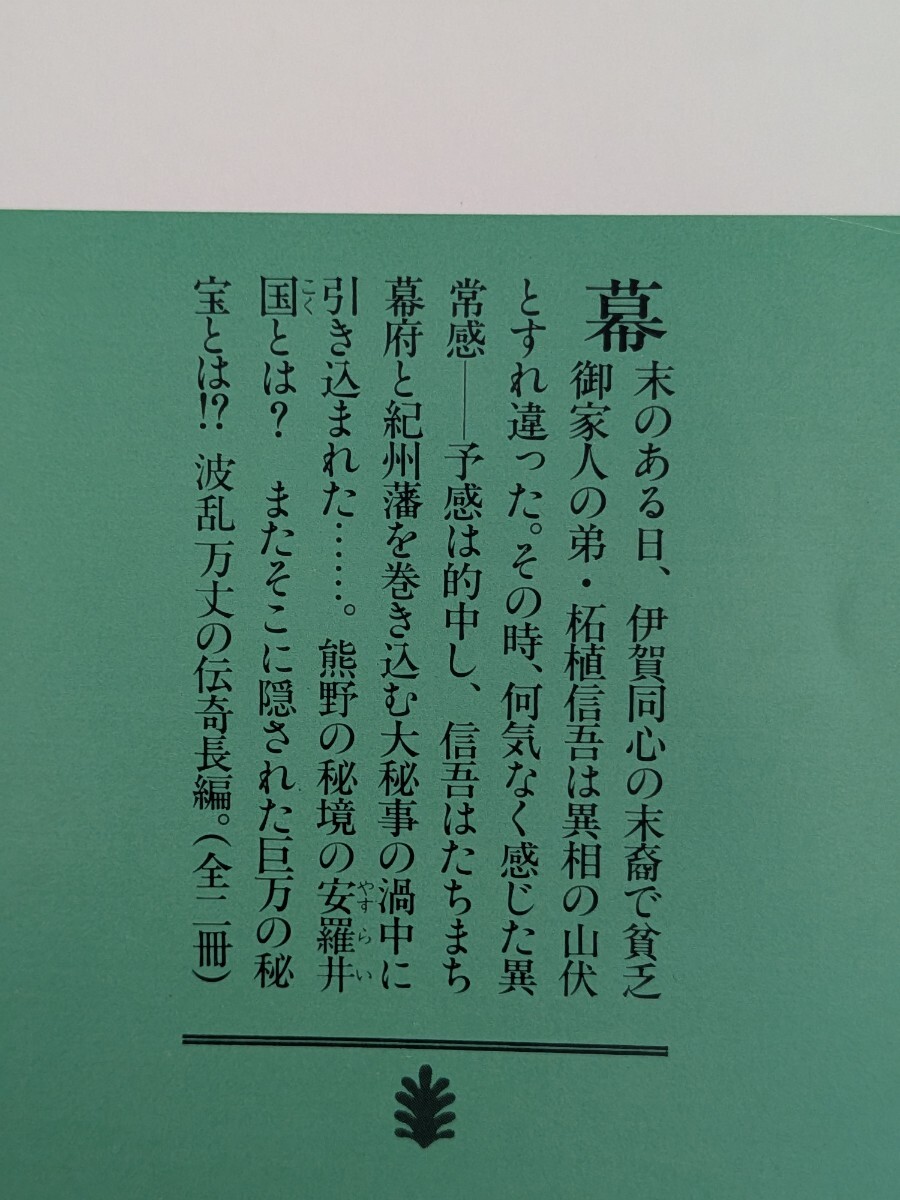 幕末のある日、伊賀同心の末裔で貧乏
御家人の弟・柘植信吾は異相の山伏
とすれ違った。その時、何気なく感じた異
常感――予感は的中し、信吾はたちまち
幕府と紀州藩を巻き込む大秘事の渦中に
引き込まれた……。熊野の秘境の安羅井
やすらい
国とは？　またそこに隠された巨万の秘
こく
宝とは!?　波乱万丈の伝奇長編。(全二冊)